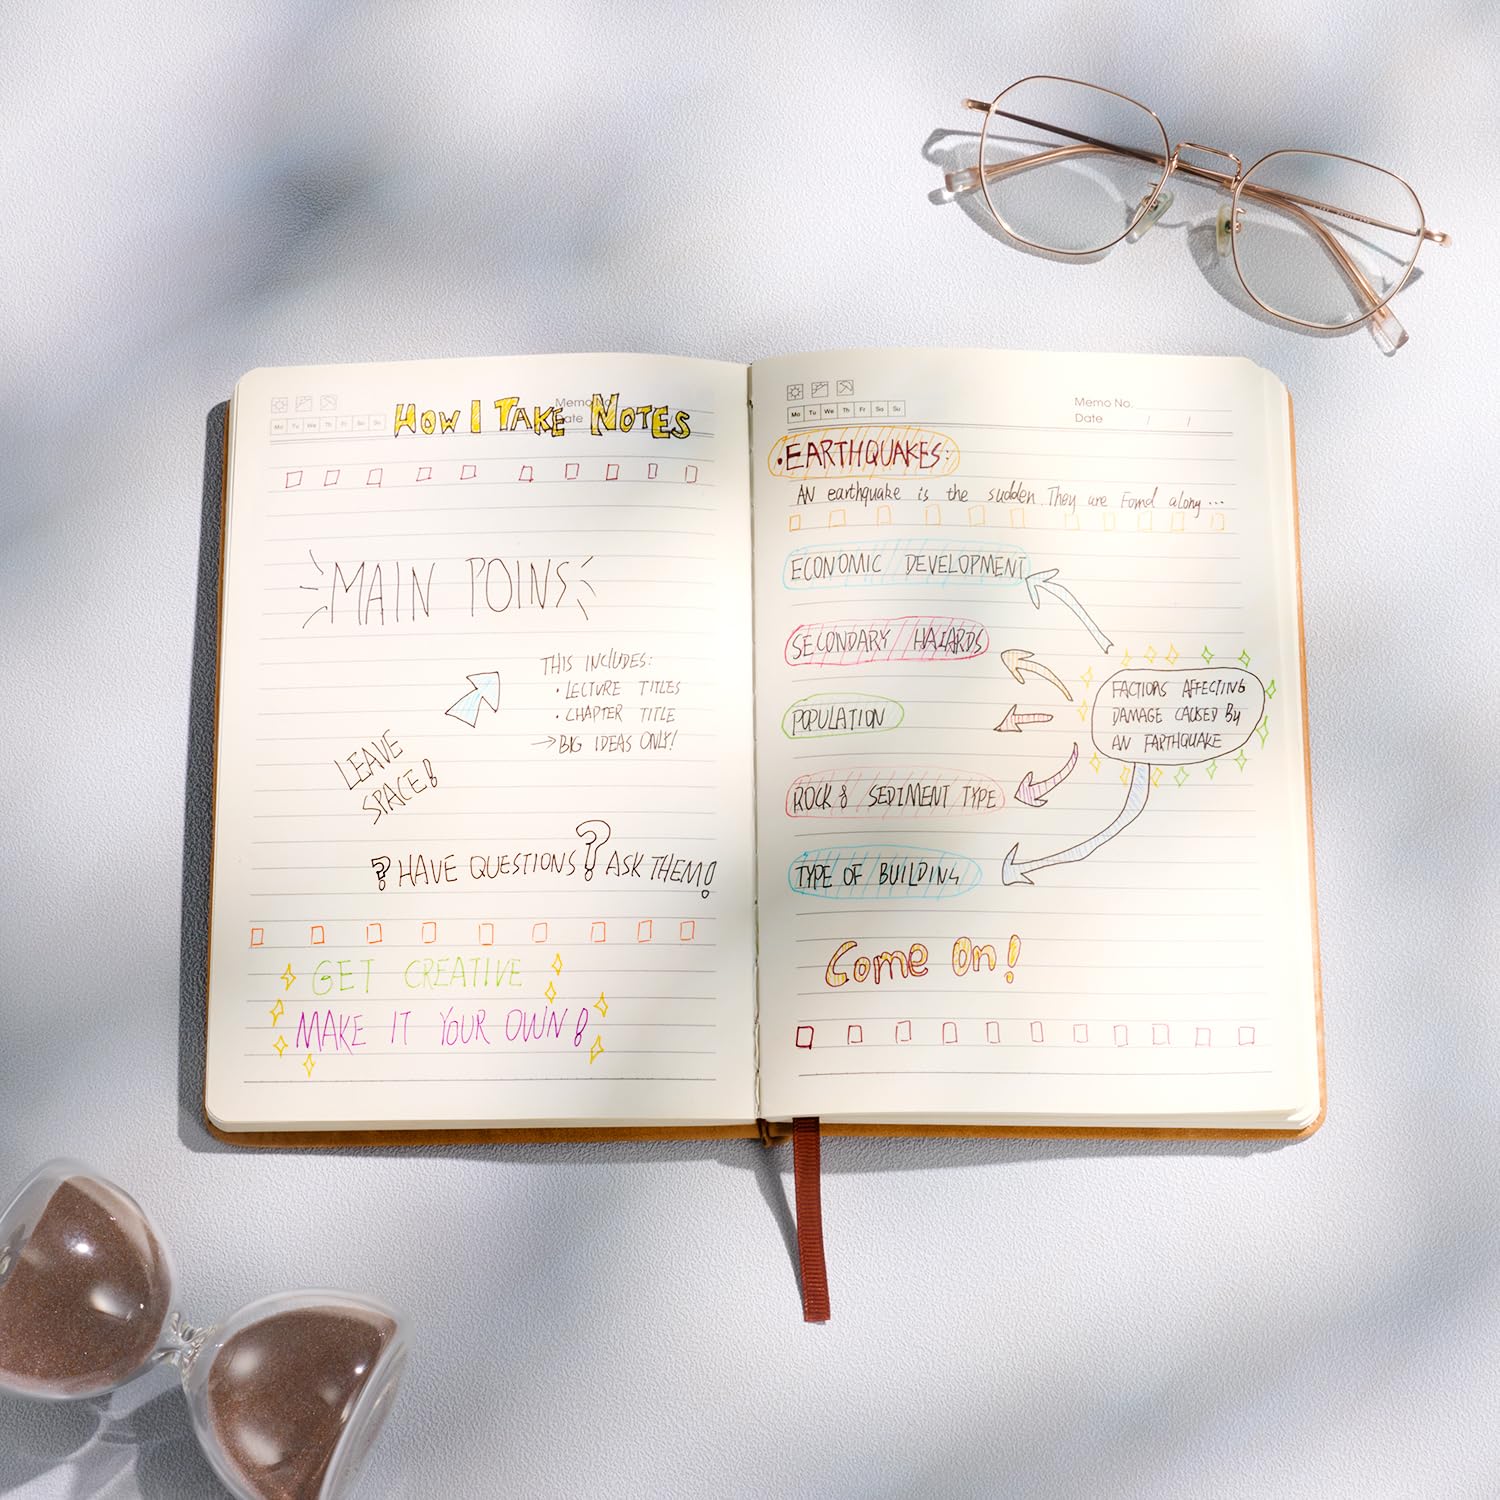 Memo No.
Date
Mo Tu We Th Fr Sa Su
HOW I TAKE NOTES
MAIN POINS
THIS INCLUDES:
• LECTURE TITLES
• CHAPTER TITLE
→ BIG IDEAS ONLY!
LEAVE
SPACE!
? HAVE QUESTIONS? ASK THEM!
GET CREATIVE
MAKE IT YOUR OWN!
Mo Tu We Th Fr Sa Su
Memo No.
Date / /
• EARTHQUAKES:
AN earthquake is the sudden. They are Fornd along...
ECONOMIC DEVELOPMENT
SECONDARY HAZARDS
POPULATION
ROCK & SEDIMENT TYPE
TYPE OF BUILDING
FACTIORS AFFECTING
DAMAGE CAUSED By
AN EARTHQUAKE
Come On!